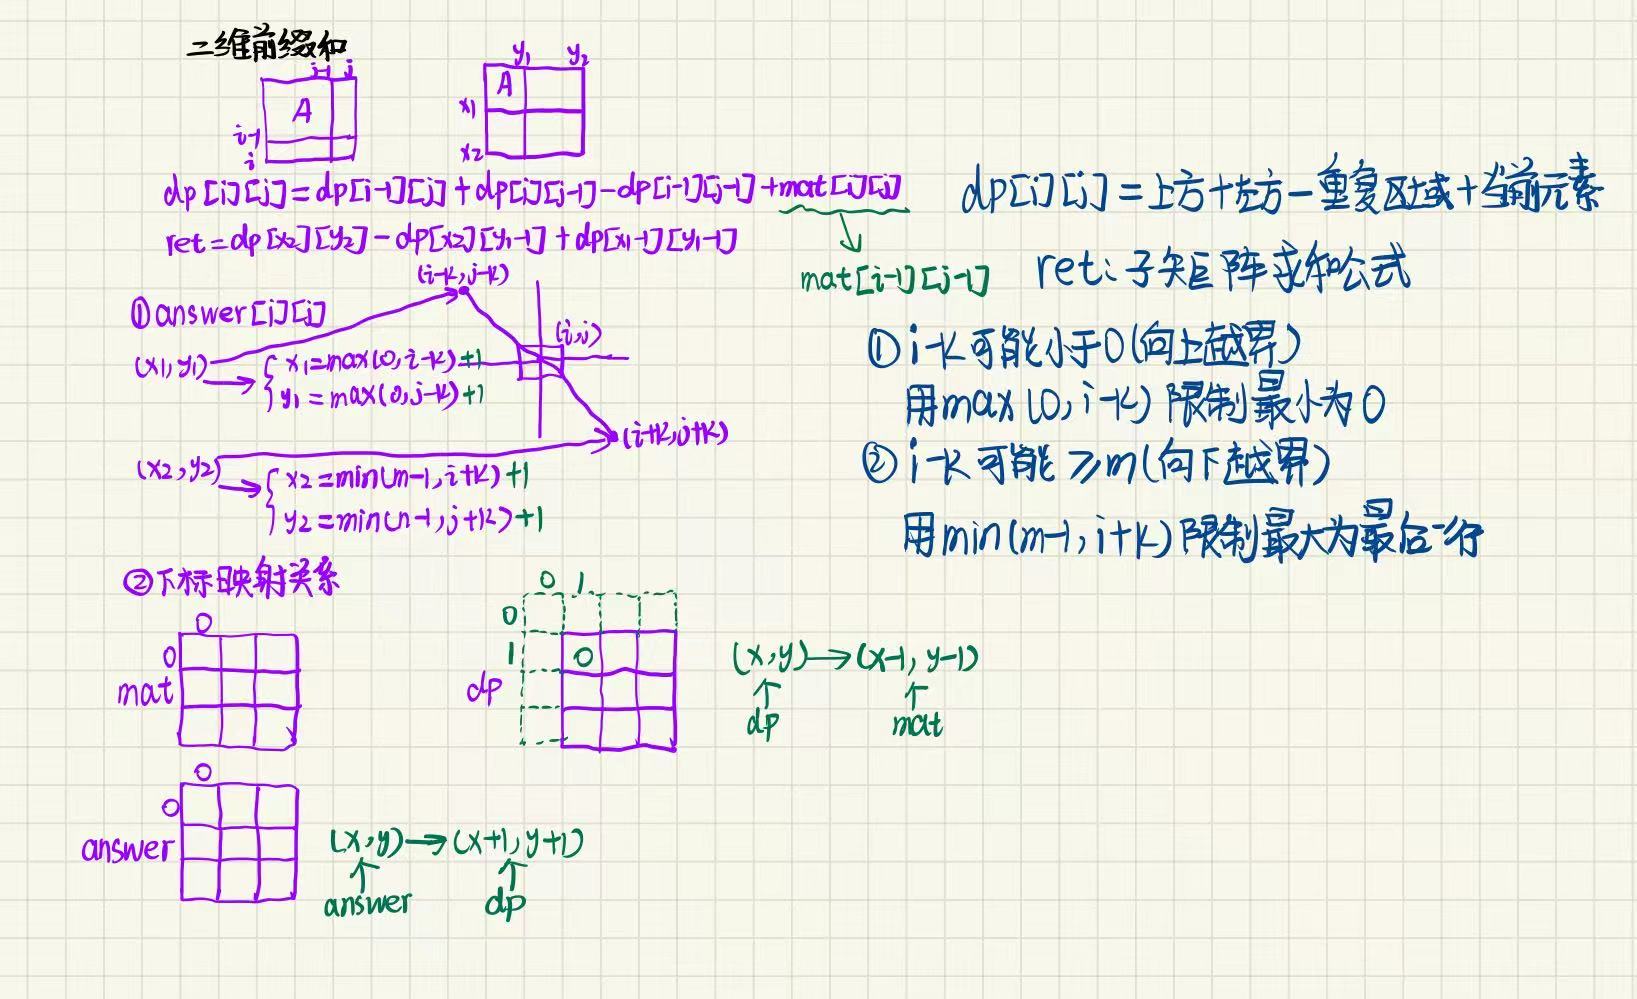 二维前缀和
j-1 j
A
i-1
i
y₁ y₂
A
x₁
x₂
dp[i][j]=dp[i-1][j]+dp[i][j-1]-dp[i-1][j-1]+mat[i][j]
ret=dp[x₂][y₂]-dp[x₂][y₁-1]+dp[x₁-1][y₁-1]
mat[i-1][j-1]
dp[i][j]=上方+左方-重复区域+当前元素
ret:子矩阵求和公式
①answer[i][j]
(i-k,j-k)
(i,j)
(x₁,y₁)
x₁=max(0,i-k)+1
y₁=max(0,j-k)+1
(i+k,j+k)
(x₂,y₂)
x₂=min(m-1,i+k)+1
y₂=min(n-1,j+k)+1
①i-k可能小于0(向上越界)
用max(0,i-k)限制最小为0
②i-k可能≥m(向下越界)
用min(m-1,i+k)限制最大为最后一行
②下标映射关系
0
0
mat
0 1
0
1 0
dp
(x,y)→(x-1,y-1)
dp mat
0
0
answer
(x,y)→(x+1,y+1)
answer dp